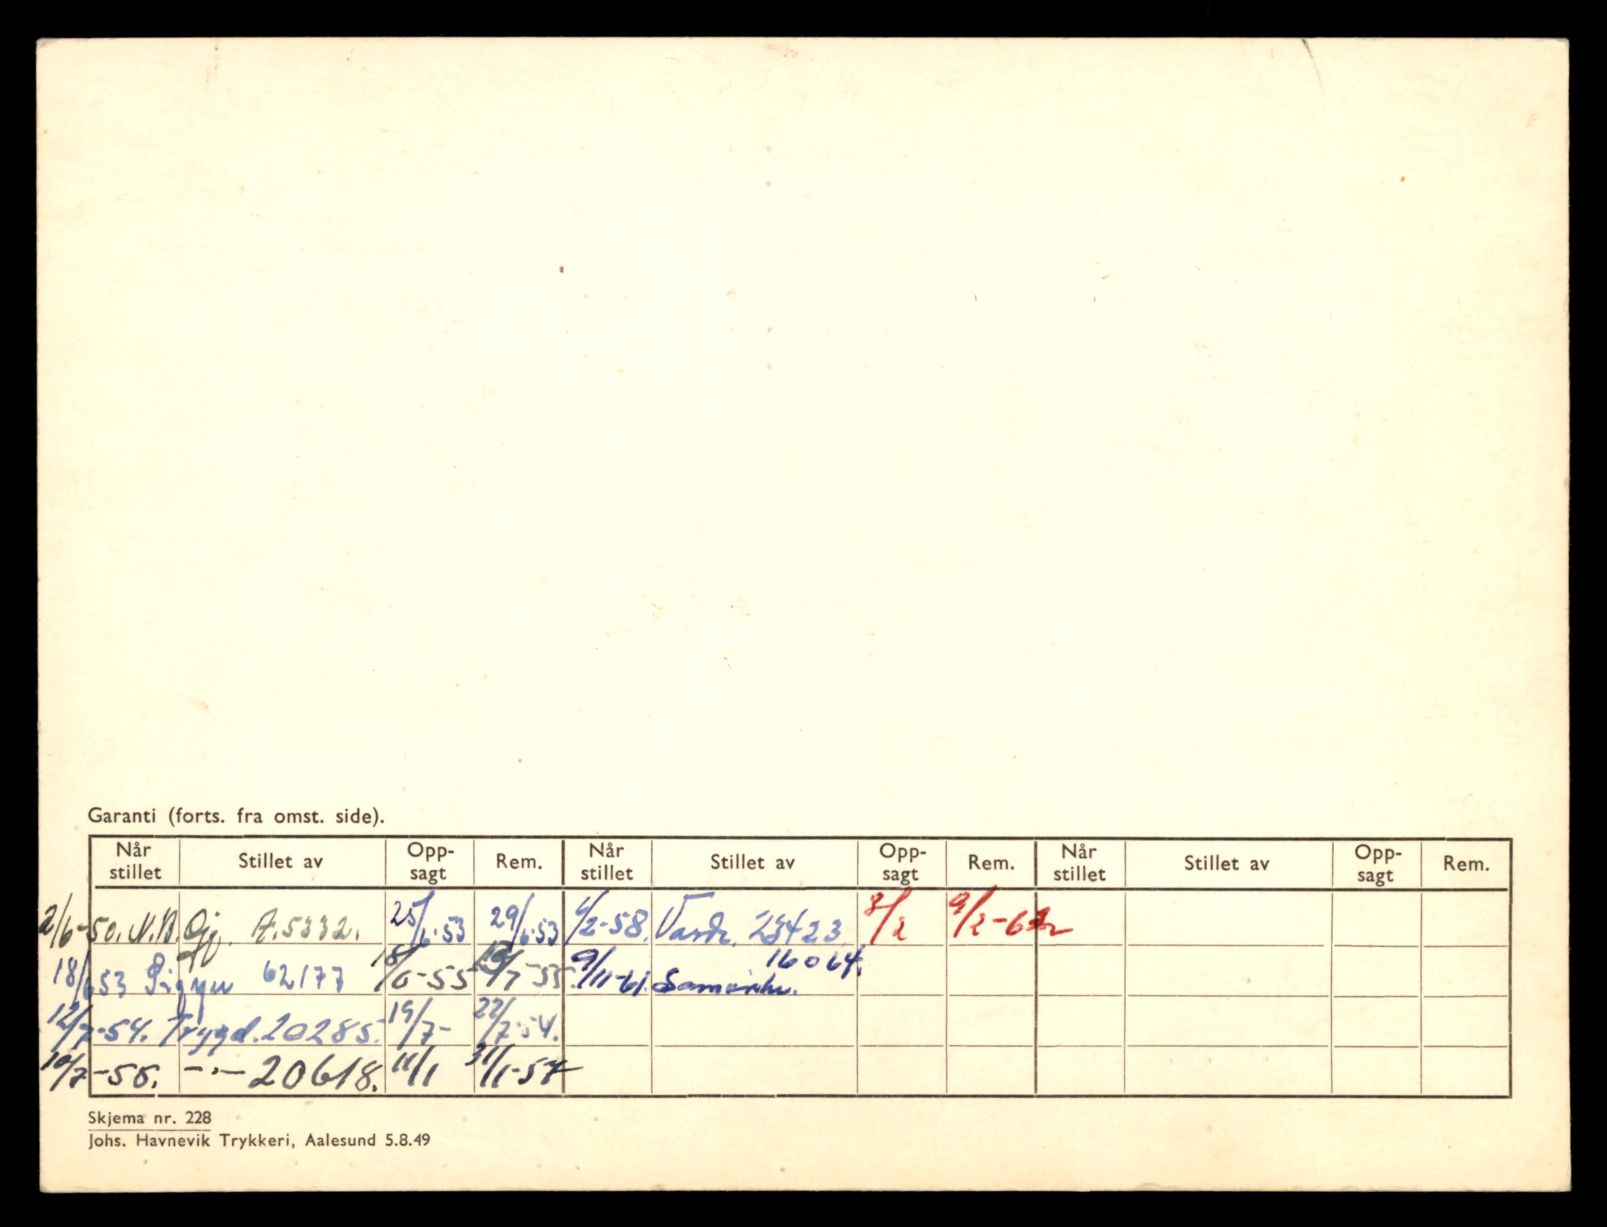 Garanti (forts. fra omst. side).
Når stillet Stillet av Opp-sagt Rem. Når stillet Stillet av Opp-sagt Rem. Når stillet Stillet av Opp-sagt Rem.
2/6-50. N.B. Gj. A.5332. 25/6-53 29/6-53 4/2-58. Vards. 23423 8/2 9/2-62
18/6 53 Sigyn 62177 18/6-55 /7-55. 9/11-61. 16064.
12/7-54. Trygd. 20285. 19/7- 22/7-54.
19/7-55. -"- 20618. 11/1 31/1-57
Skjema nr. 228
Johs. Havnevik Trykkeri, Aalesund 5.8.49